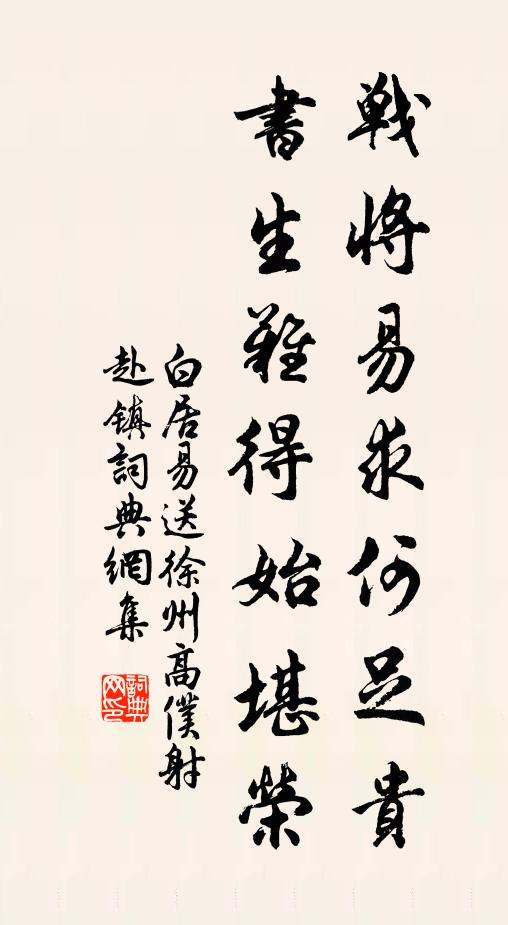 戰將易求何足貴
書生難得始堪榮
白居易送徐州高僕射
赴鎮詞典網集
詞典网印